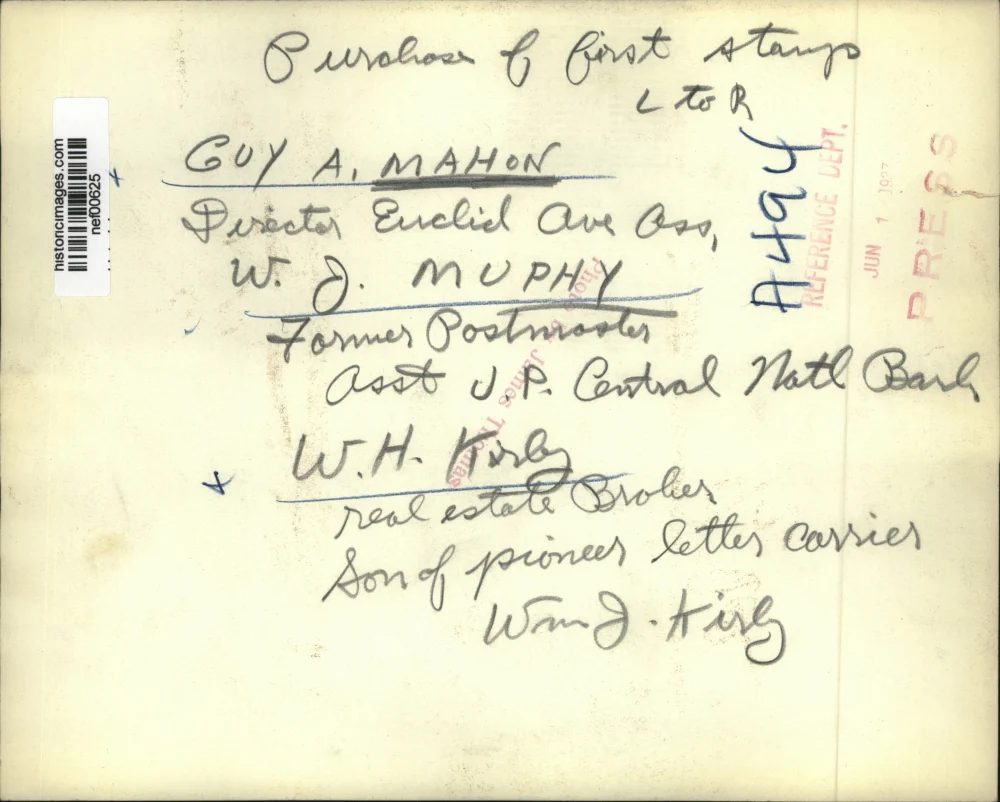 Purchase of first stamps
L to R
GUY A. MAHON
Director Euclid Ave Ass,
W. J. MUPHY
Former Postmaster
asst V.P. Central Natl Bank
W.H. Kirby
real estate Broker
Son of pioneer letter carrier
Wm J. Kirby
A494
REFERENCE DEPT.
JUN 1 1937
PRESS
Photo by James Thomas
historicimages.com
nef00625